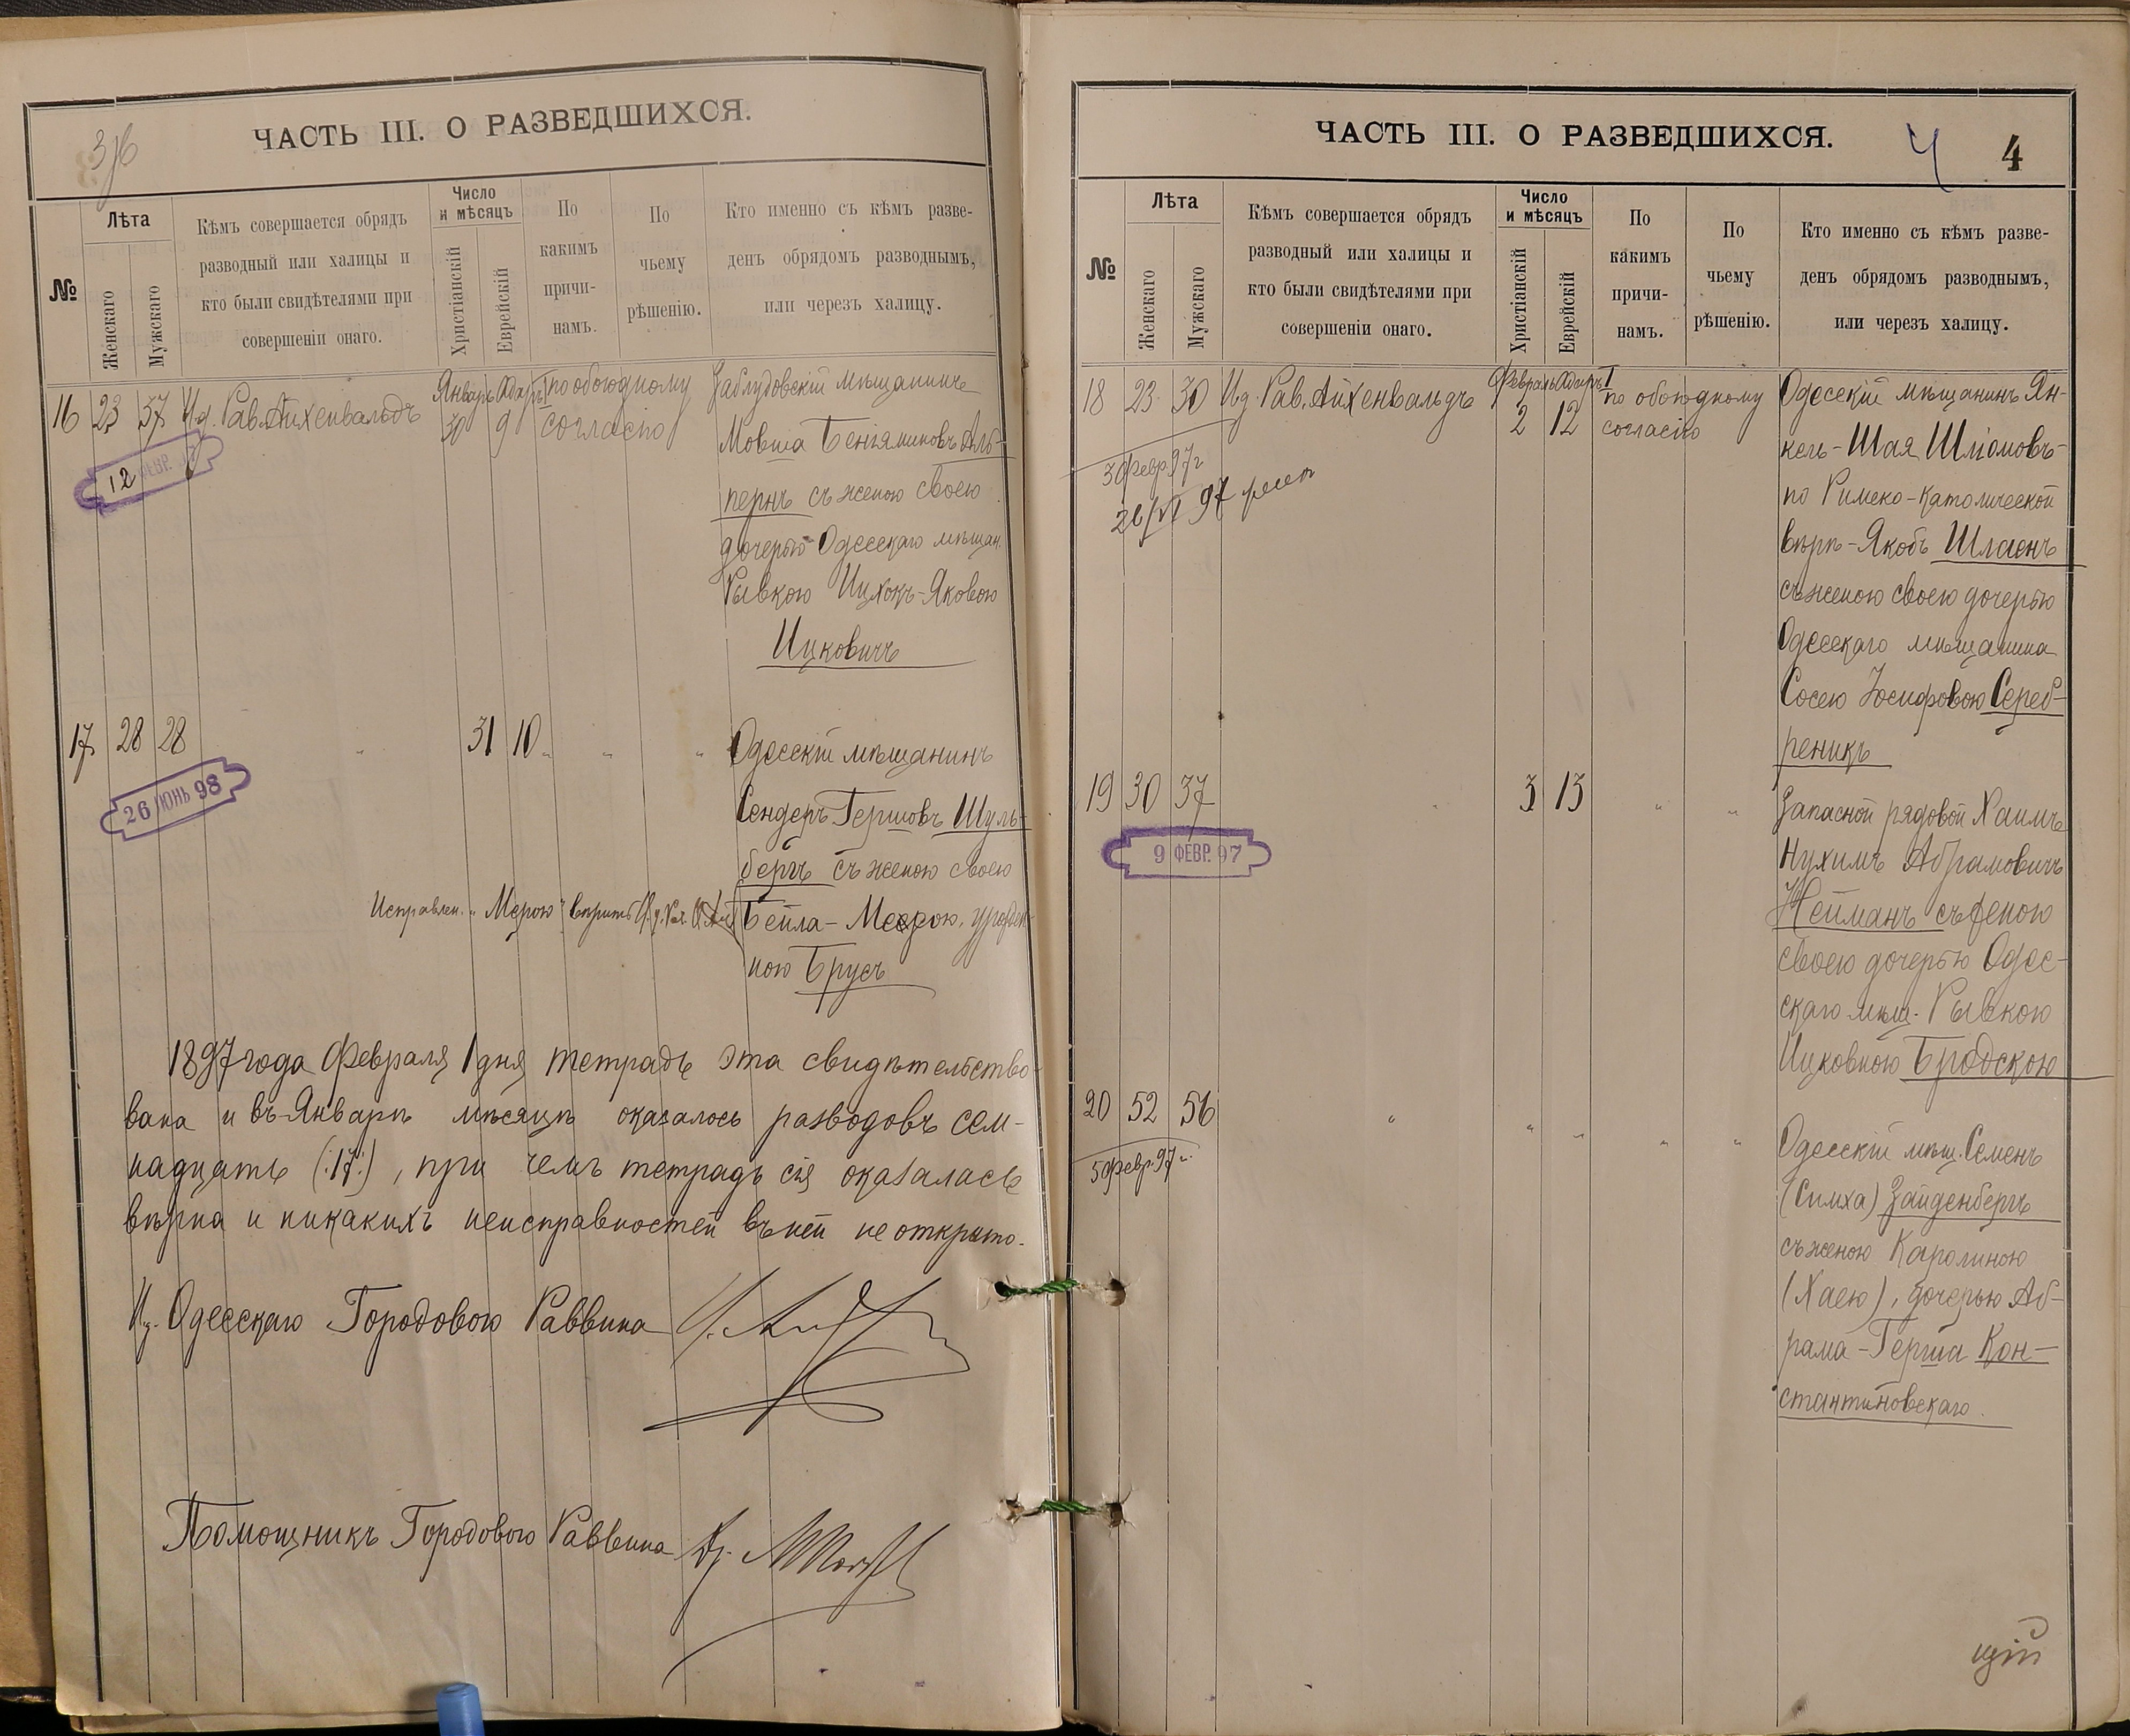 3/6
ЧАСТЬ III. О РАЗВЕДШИХСЯ.
№
Лѣта
Женскаго
Мужскаго
Кѣмъ совершается обрядъ
разводный или халицы и
кто были свидѣтелями при
совершеніи онаго.
Число
и мѣсяцъ
Христіанскій
Еврейскій
По
какимъ
причи-
намъ.
По
чьему
рѣшенію.
Кто именно съ кѣмъ разве-
денъ обрядомъ разводнымъ,
или черезъ халицу.
16 23 37 И.д. Рав. Айхенвальдъ
Январь 30
Адаръ I 9
по обоюдному
согласію
Заблудовскій мѣщанинъ
Мовша Беніяминовъ Аль-
пернъ съ женою своею
дочерью Одесскаго мѣщан.
Рывкою Ицхокъ-Яковою
Ицковичъ
12 ФЕВР. 97
17 28 28 " 31 10 " " "
Одесскій мѣщанинъ
Сендеръ Гершовъ Шуль-
бергъ съ женою своею
Бейла-Меерою, урожден-
ною Брусъ
26 ІЮНЬ 98
Исправлен. "Мерою" вѣрить И.д. Рав.
1897 года Февраля 1 дня тетрадь эта свидѣтельство-
вана и въ Январѣ мѣсяцѣ оказалось разводовъ сем-
надцать (:17:), при чемъ тетрадь сія оказалась
вѣрна и никакихъ неисправностей въ ней не открыто.
И.д. Одесскаго Городового Раввина
Помощникъ Городового Раввина
ЧАСТЬ III. О РАЗВЕДШИХСЯ.
4 4
№
Лѣта
Женскаго
Мужскаго
Кѣмъ совершается обрядъ
разводный или халицы и
кто были свидѣтелями при
совершеніи онаго.
Число
и мѣсяцъ
Христіанскій
Еврейскій
По
какимъ
причи-
намъ.
По
чьему
рѣшенію.
Кто именно съ кѣмъ разве-
денъ обрядомъ разводнымъ,
или черезъ халицу.
18 23 30 И.д. Рав. Айхенвальдъ
Февраль 2
Адаръ I 12
по обоюдному
согласію
Одесскій мѣщанинъ Ян-
кель-Шая Шліомовъ-
по Римско-католической
вѣрѣ-Якобъ Шлаенъ
съ женою своею дочерью
Одесскаго мѣщанина
Сосею Іосифовою Сереб-
реникъ
3 Февр. 97 г.
26/VI 97
19 30 37 " 3 13 " "
Запасной рядовой Хаимъ
Нухимъ Абрамовичъ
Нейманъ съ женою
своею дочерью Одес-
скаго мѣщ. Рывкою
Ицковною Бродскою
9 ФЕВР. 97
20 52 56 " " " " "
Одесскій мѣщ. Семенъ
(Симха) Зайденбергъ
съ женою Каролиною
(Хаею), дочерью Аб-
рама-Герша Кон-
стантиновскаго.
5 Февр. 97 г.
щій